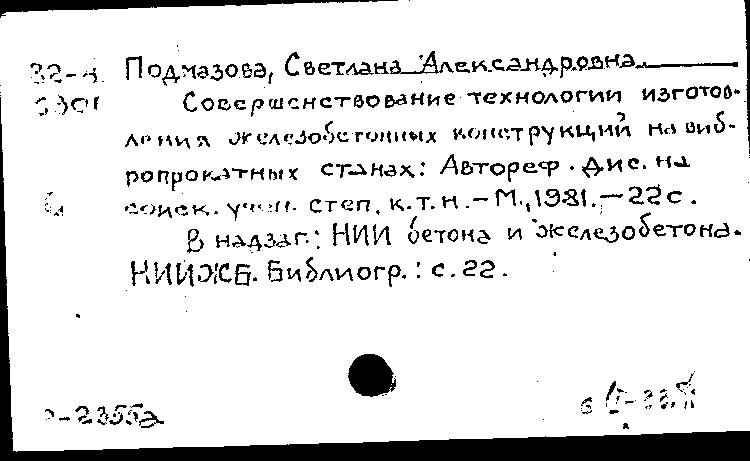 Подмазова, Светлана Александровна
Совершенствование технологии изготов-
ления железобетонных конструкций на виб-
ропрокатных станах: Автореф. дис. на
соиск. учен. степ. к.т.н. – М., 1981. – 22 с.
В надзаг.: НИИ бетона и железобетона.
НИИЖБ. Библиогр.: с. 22.